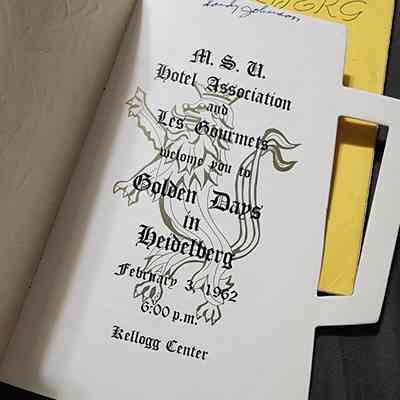 Sandy Johnson
M. S. U.
Hotel Association
and
Les Gourmets
welcome you to
Golden Days
in
Heidelberg
February 3, 1962
6:00 p.m.
Kellogg Center